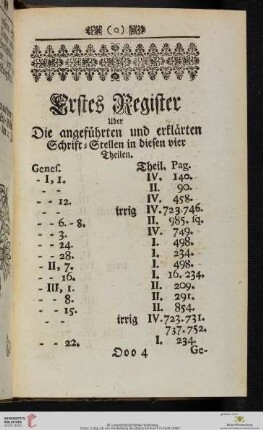 (o)
Erstes Register
Uber
Die angeführten und erklärten
Schrift-Stellen in diesen vier
Theilen.
Genes. Theil. Pag.
- I, 1. IV. 140.
- - II. 90.
- - 12. IV. 458.
- - irrig IV. 723. 746.
- - 6. - 8. II. 985. sq.
- - 3. IV. 749.
- - 24. I. 498.
- - 28. I. 234.
- II, 7. I. 498.
- - 16. I. 16. 234.
- III, 1. II. 209.
- - 8. II. 291.
- - 15. II. 854.
- - irrig IV. 723. 731.
737. 752.
- - 22. I. 234.
Ooo 4 Ge-